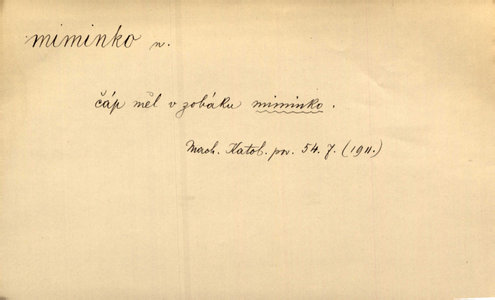 miminko n.
čáp měl v zobáku miminko.
Mach. Katol. pov. 54. 7. (1911.)